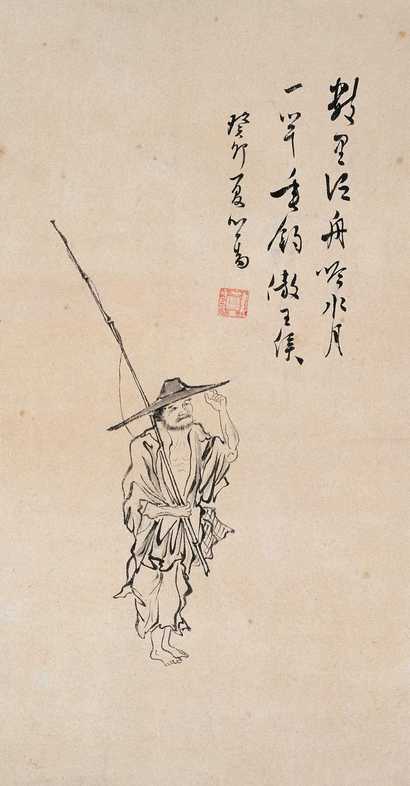 數里江舟吟水月
一竿垂釣傲王侯
癸卯夏心畬